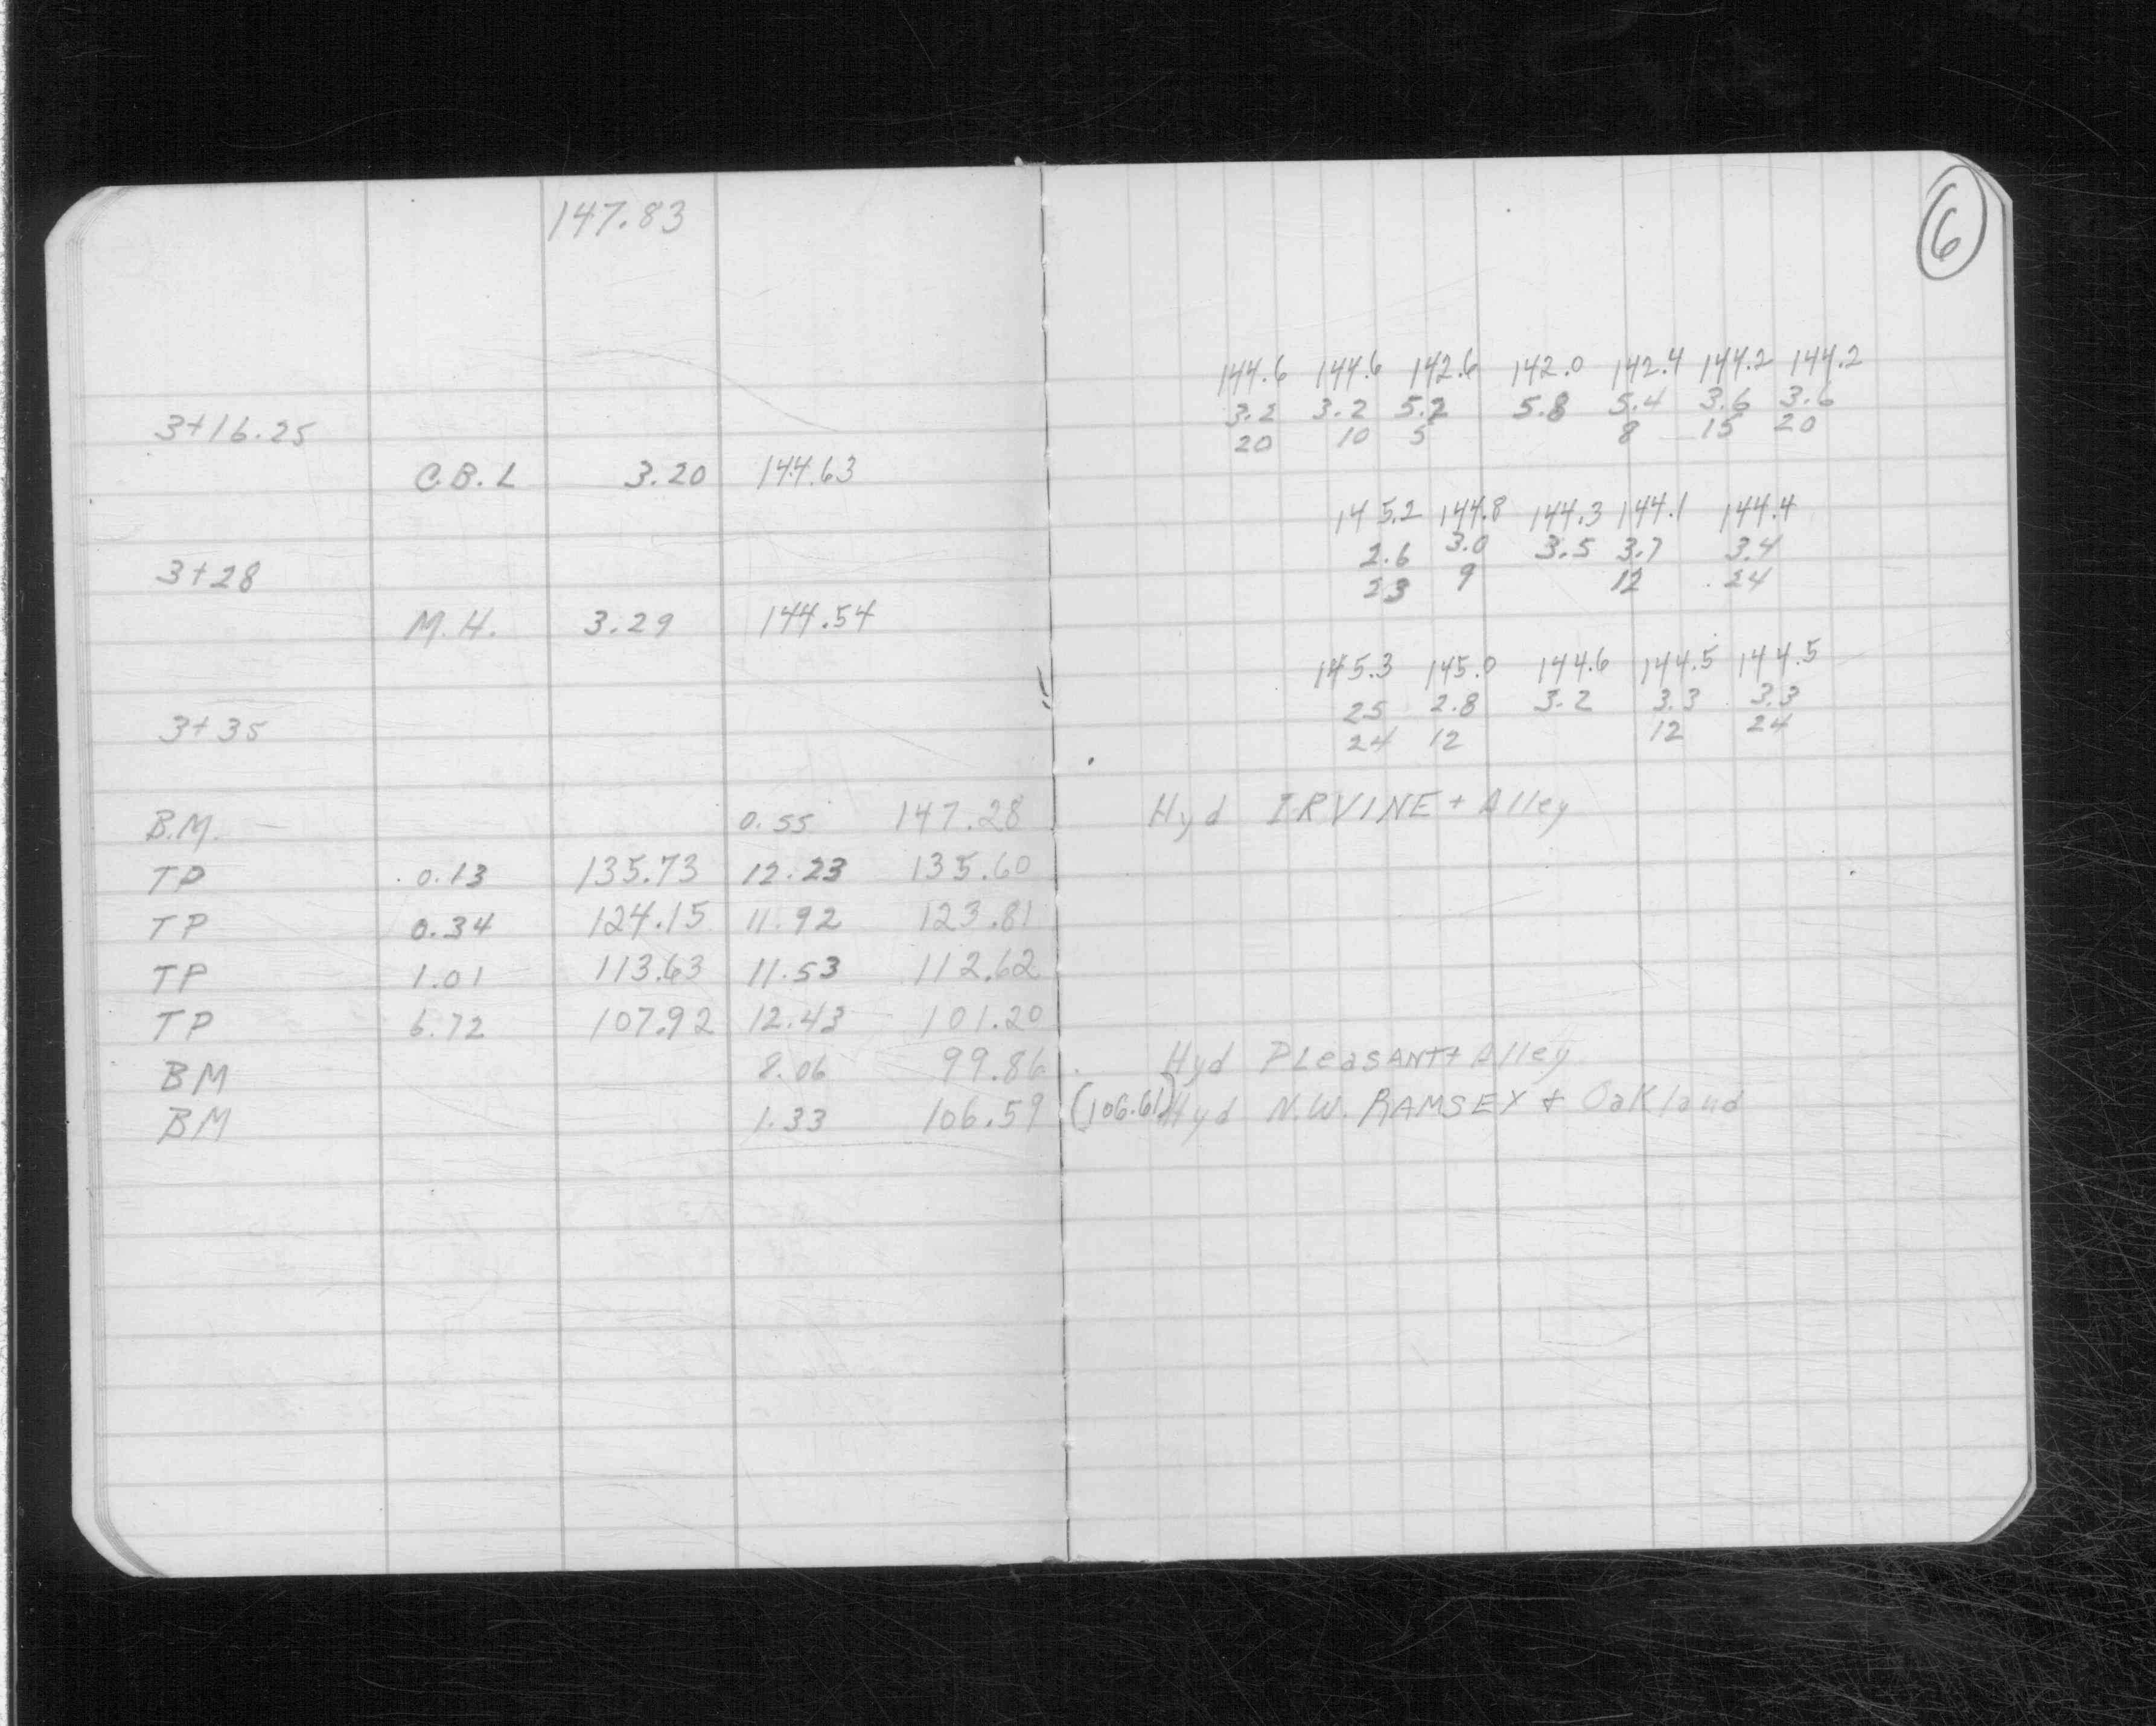 147.83
6
144.6 144.6 142.6 142.0 142.4 144.2 144.2
3.2 3.2 5.2 5.8 5.4 3.6 3.6
3+16.25 20 10 5 8 15 20
C.B.L 3.20 144.63
145.2 144.8 144.3 144.1 144.4
2.6 3.0 3.5 3.7 3.4
3+28 23 9 12 24
M.H. 3.29 144.54
145.3 145.0 144.6 144.5 144.5
25 2.8 3.2 3.3 3.3
3+35 24 12 12 24
B.M. 0.55 147.28 Hyd IRVINE + Alley
TP 0.13 135.73 12.23 135.60
TP 0.34 124.15 11.92 123.81
TP 1.01 113.63 11.53 112.62
TP 6.72 107.92 12.43 101.20
BM 8.06 99.86 Hyd PLeasANT + Alley
BM 1.33 106.59 (106.61) Hyd N.W. RAMSEY + Oakland